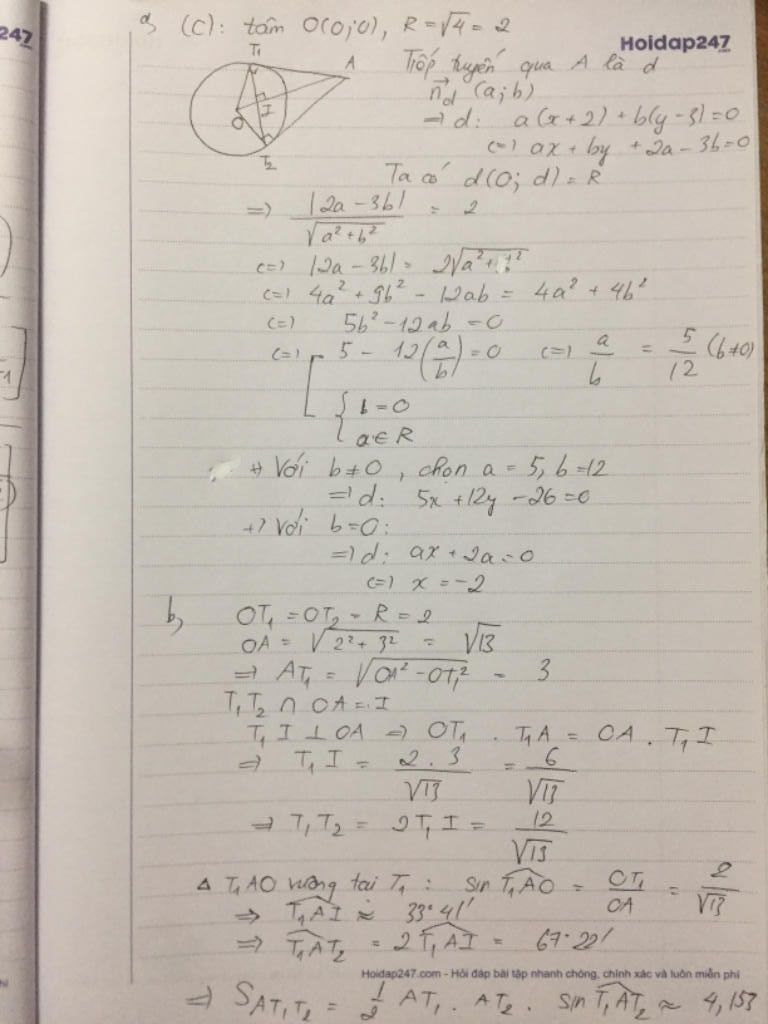 247
a) (C): tâm O(0;0), R = √4 = 2
Hoidap247
T₁
A
O
I
T₂
Tiếp tuyến qua A là d
n⃗_d (a; b)
⇒ d: a(x+2) + b(y-3) = 0
⇔ ax + by + 2a - 3b = 0
Ta có d(O; d) = R
⇒ |2a - 3b| / √(a² + b²) = 2
⇔ |2a - 3b| = 2√(a² + b²)
⇔ 4a² + 9b² - 12ab = 4a² + 4b²
⇔ 5b² - 12ab = 0
⇔ [ 5 - 12(a/b) = 0 ⇔ a/b = 5/12 (b≠0)
{ b = 0
a ∈ R
+) Với b ≠ 0, chọn a = 5, b = 12
⇒ d: 5x + 12y - 26 = 0
+) Với b = 0:
⇒ d: ax + 2a = 0
⇔ x = -2
b)
OT₁ = OT₂ = R = 2
OA = √(2² + 3²) = √13
⇒ AT₁ = √(OA² - OT₁²) = 3
T₁T₂ ∩ OA = I
T₁I ⊥ OA ⇒ OT₁ . T₁A = OA . T₁I
⇒ T₁I = 2 . 3 / √13 = 6/√13
⇒ T₁T₂ = 2T₁I = 12/√13
Δ T₁AO vuông tại T₁: sin T₁AO = OT₁/OA = 2/√13
⇒ T₁AI ≈ 33°41'
⇒ T₁AT₂ = 2T₁AI = 67°22'
Hoidap247.com - Hỏi đáp bài tập nhanh chóng, chính xác và luôn miễn phí
⇒ S_AT₁T₂ = 1/2 AT₁ . AT₂ . sin T₁AT₂ ≈ 4,153